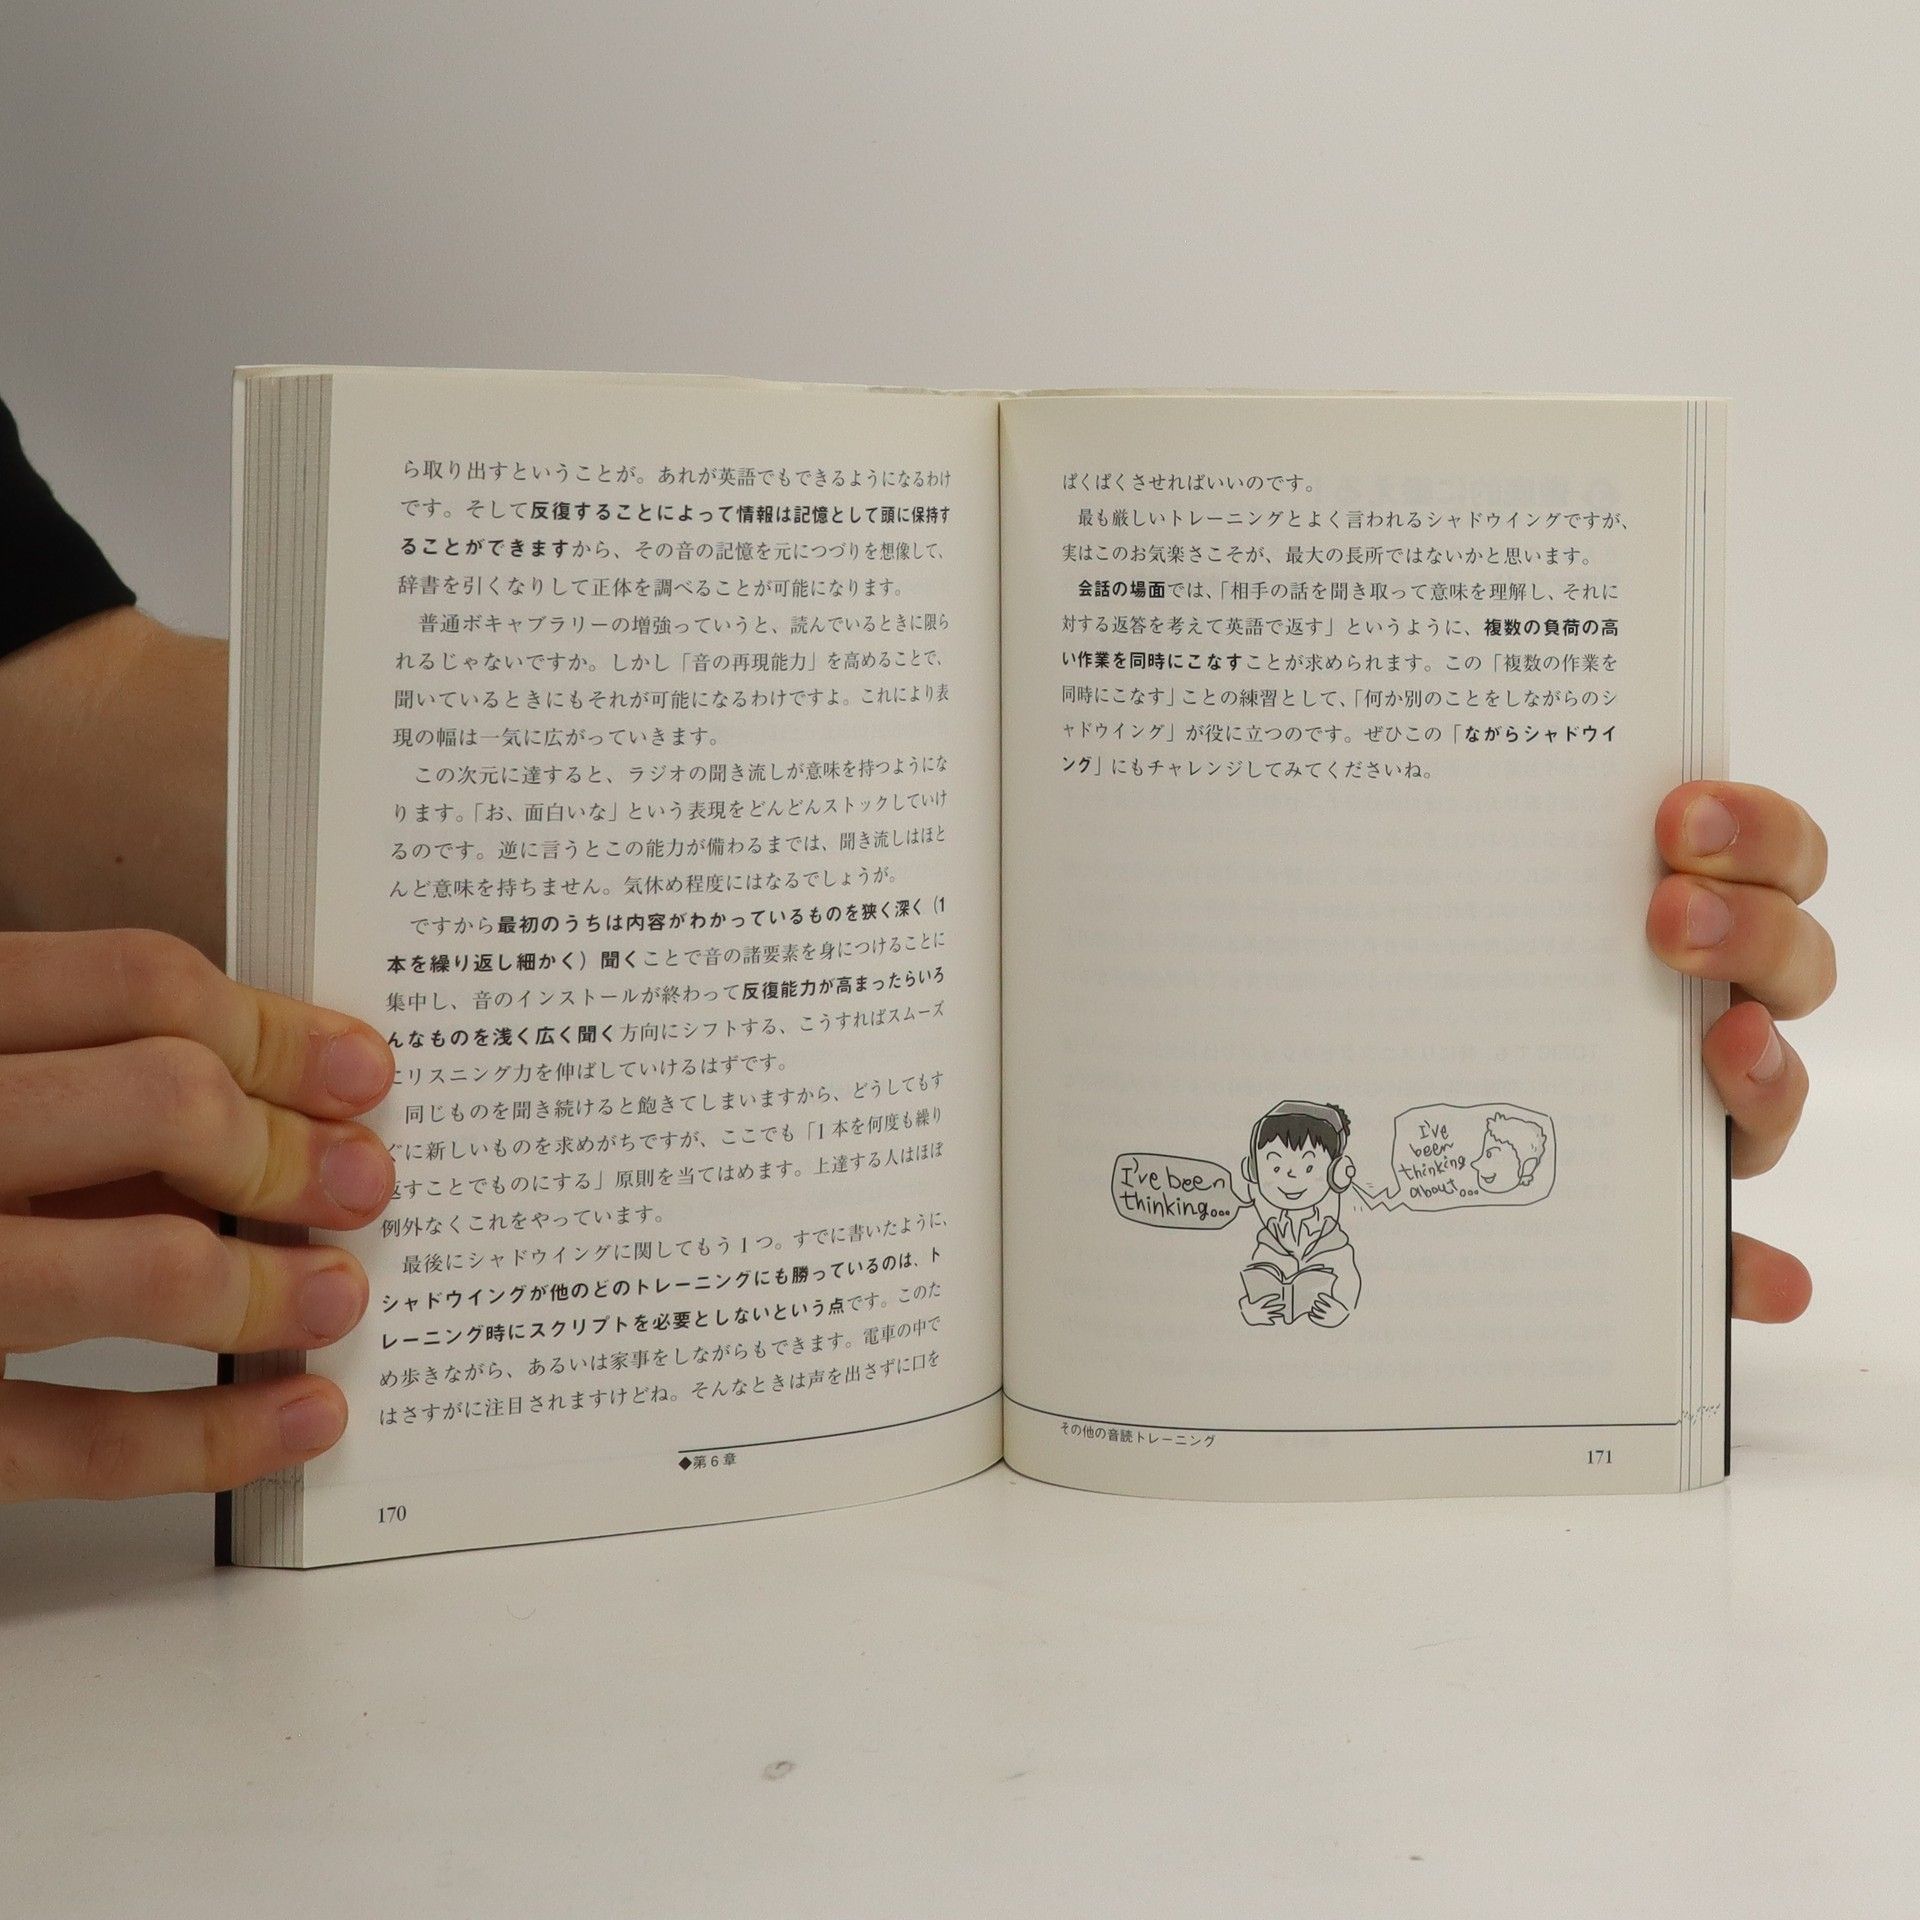 ら取り出すということが。あれが英語でもできるようになるわけ
です。そして反復することによって情報は記憶として頭に保持す
ることができますから、その音の記憶を元につづりを想像して、
辞書を引くなりして正体を調べることが可能になります。
普通ボキャブラリーの増強っていうと、読んでいるときに限ら
れるじゃないですか。しかし「音の再現能力」を高めることで、
聞いているときにもそれが可能になるわけですよ。これにより表
現の幅は一気に広がっていきます。
この次元に達すると、ラジオの聞き流しが意味を持つようにな
ります。「お、面白いな」という表現をどんどんストックしていけ
るのです。逆に言うとこの能力が備わるまでは、聞き流しはほと
んど意味を持ちません。気休め程度にはなるでしょうが。
ですから最初のうちは内容がわかっているものを狭く深く（1
本を繰り返し細かく）聞くことで音の諸要素を身につけることに
集中し、音のインストールが終わって反復能力が高まったらいろ
んなものを浅く広く聞く方向にシフトする、こうすればスムーズ
にリスニング力を伸ばしていけるはずです。
同じものを聞き続けると飽きてしまいますから、どうしてもす
ぐに新しいものを求めがちですが、ここでも「1本を何度も繰り
返すことでものにする」原則を当てはめます。上達する人はほぼ
例外なくこれをやっています。
最後にシャドウイングに関してもう1つ。すでに書いたように、
シャドウイングが他のどのトレーニングにも勝っているのは、ト
レーニング時にスクリプトを必要としないという点です。このた
め歩きながら、あるいは家事をしながらもできます。電車の中で
はさすがに注目されますけどね。そんなときは声を出さずに口を
◆第6章
170
ぱくぱくさせればいいのです。
最も厳しいトレーニングとよく言われるシャドウイングですが、
実はこのお気楽さこそが、最大の長所ではないかと思います。
会話の場面では、「相手の話を聞き取って意味を理解し、それに
対する返答を考えて英語で返す」というように、複数の負荷の高
い作業を同時にこなすことが求められます。この「複数の作業を
同時にこなす」ことの練習として、「何か別のことをしながらのシ
ャドウイング」が役に立つのです。ぜひこの「ながらシャドウイ
ング」にもチャレンジしてみてくださいね。
I've been
thinking...
I've
been
thinking
about...
その他の音読トレーニング
171